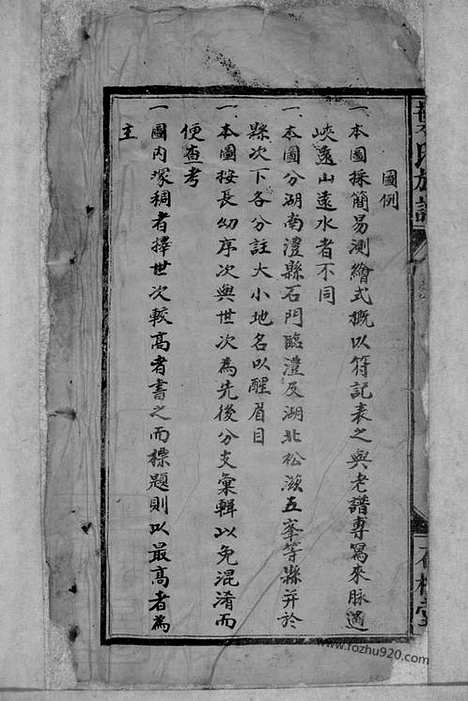 圖例
一本圖採簡易測繪式概以符記表之與老譜專寫來脉過
峽遠山遠水者不同
一本圖分湖南澧縣石門臨澧及湖北松滋五峯等縣并於
縣次下各分註大小地名以醒眉目
一本圖按長幼序次與世次為先後分支彙輯以免混淆而
便查考
一圖内塚稠者擇世次較高者書之而標題則以最高者為
主
氏族譜
www.fozhu920.com